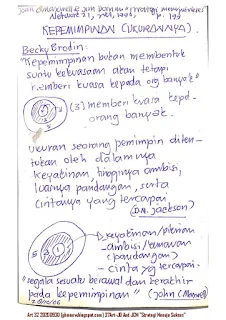 John
Network 21,
KEPEMIMPINAN (UKURANNYA).
Becky Brodin:
"Kepemimpinan bukan membentuk
suatu kekuasaan akan tetapi
memberi kuasa kepada org banyak"
(3) memberi kuasa kepd
orang banyak.
ukuran seorang pemimpin diten-
tukan oleh dalamnya
keyakinan, tingginya ambisi,
luasnya pandangan, serta
cintanya yang tercapai
(D.N. Jackson)
keyakinan/pikiran
-ambisi/
(pandangan)
-cinta yg tercapai.
"segala sesuatu berawal dan berakhir
pada kepemimpinan" (John C Maxwell)
Art 32 20202030 (jphonewblogspot.com) 27Art-JO And JOH "Strategi Menuju Sukses"